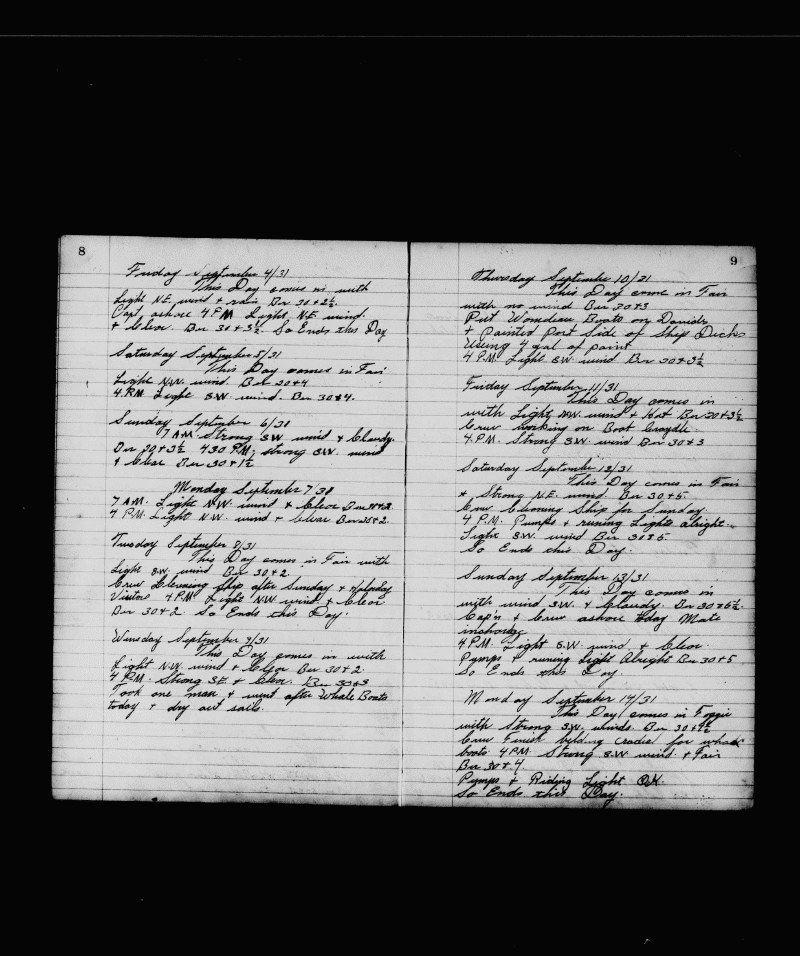 8
Friday September 4/31
This Day comes in with
Light N.E. wind & rain Bar 30+2½.
Capt. ashore 4 P.M. Light N.E. wind.
& Clear. Bar 30+3½ So Ends this Day
Saturday September 5/31
This Day comes in Fair
Light N.W. wind. Bar 30+4
4 P.M. Light S.W. wind. Bar 30+4.
Sunday September 6/31
7 A.M. Strong S.W. wind & Cloudy.
Bar 30+3½ 4.30 P.M. strong S.W. wind
& Clear Bar 30+1½
Monday September 7/31
7 A.M. Light N.W. wind & Clear Bar 30+2.
4 P.M. Light N.W. wind & Clear Bar 30+2.
Tuesday September 8/31
This Day comes in Fair with
Light S.W. wind Bar 30+2
Crew Cleaning ship after Sunday & Holorday
Visitors 4 P.M. Light N.W. wind & Clear
Bar 30+2. So Ends this Day.
Wensday September 9/31
This Day comes in with
Light N.W. wind & Clear Bar 30+2.
4 P.M. Strong S.E & Clear. Bar 30+3
Took one man & went after Whale Boats
today & dry out sails.
9
Thursday September 10/31
This Day come in Fair
with no wind Bar 30+3
Put Boats on Davids
& Painted Port Side of Ship Decks
Useing 4 gal of paint.
4 P.M. Light S.W. wind Bar 30+3½
Friday September 11/31
This Day comes in
with Light N.W. wind & Hot Bar 30+3½
Crew working on Boat
4.P.M. Strong S.W. wind Bar 30+3
Saturday September 12/31
This Day comes in Fair
& Strong N.E. wind. Bar 30+5
Crew Cleaning Ship for Sunday.
4 P.M. Pumps & runing Lights alright.
Light S.W. wind Bar 30+5.
So Ends this Day.
Sunday September 13/31
This Day comes in
with wind S.W. & Cloudy. Bar 30+5½.
Cap'n & Crew ashore today Mate
incharge
4 P.M. Light S.W. wind & Clear.
Pumps & runing Light Alright Bar 30+5
So Ends this Day
Monday September 14/31
This Day comes in Foggie
with Strong S.W. winds. Bar 30+4½
Crew Finish bilding cradel for whale
boats 4 P.M. Strong S.W. wind & Fair
Bar 30+4
Pumps & Riding Light O.K.
So Ends this Day.